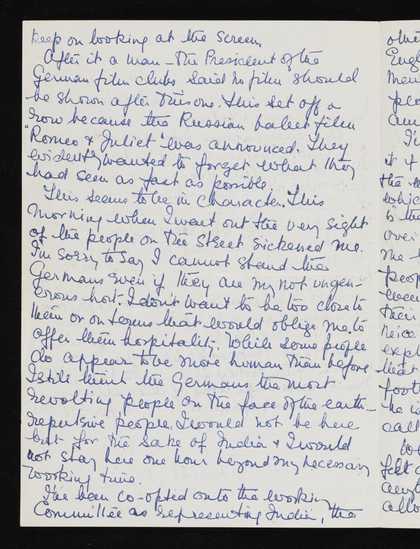 keep on looking at the screen.
After it a man – the President of the
German film clubs said no film should
be shown after this one. This set off a
row because the Russian ballet film
"Romeo & Juliet" was announced. They
evidently wanted to forget what they
had seen as fast as possible.
This seems to be in character. This
morning when I went out the very sight
of the people on the street sickened me.
I'm sorry to say I cannot stand the
Germans even if they are my not ungen-
erous host. I don't want to be too close to
them or on terms that would oblige me to
offer them hospitality. While some people
do appear to be more human than before
I still think the Germans the most
revolting people on the face of the earth –
repulsive people. I would not be here
but for the sake of India & I would
not stay here one hour beyond my necessary
working time.
I've been co-opted onto the working
Committee as representing India, the
othe
Engl
men
peo
am
it
the
which
to
over
me
peop
their
nice
exp
that
foot
he
call
felt